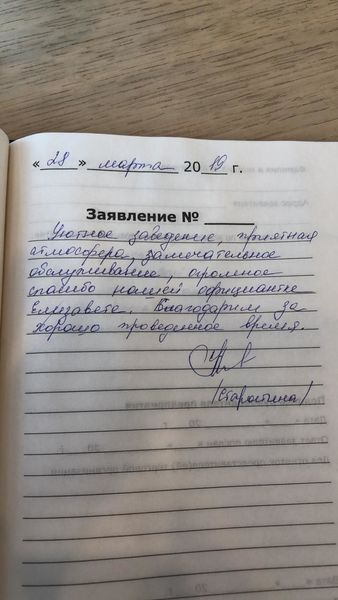 « 28 » марта 20 19 г.
Заявление №
Уютное заведение, приятная
атмосфера, замечательное
обслуживание, огромное
спасибо нашей официантке
Елизавете. Благодарим за
хорошо проведенное время
/Старостина/